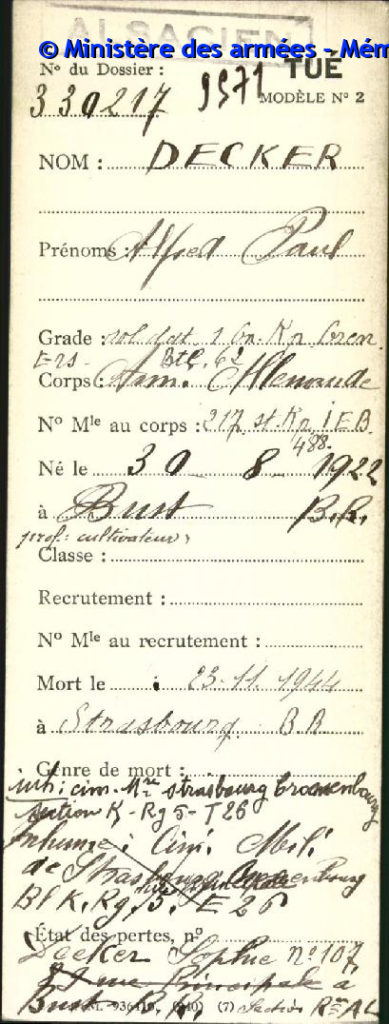 ALSACIEN
© Ministère des armées - Mém
N° du Dossier :
TUÉ
330217
9971
MODÈLE N° 2
NOM : DECKER
Prénoms : Alfred Paul
Grade : soldat 1 Gn. Kp. Gren.
Ers. Btl. 62
Corps : Arm. Allemande
N° Mle au corps : 217 st. Kp. I.E.B.
488
Né le 30 - 8 - 1922
à Bust B.R.
prof : cultivateur
Classe :
Recrutement :
N° Mle au recrutement :
Mort le 23.11.1944
à Strasbourg B.R.
Genre de mort :
inh : cim. Mre strasbourg Cronenbourg
section K - Rg 5 - T 26
Inhumé : Cim. Mili.
de Strasbourg Cronenbourg
Bl K. Rg. 5. E 26
État des pertes, n°
Decker Sophie n° 107
rue Principale à
Bust B.R. Section
(7)